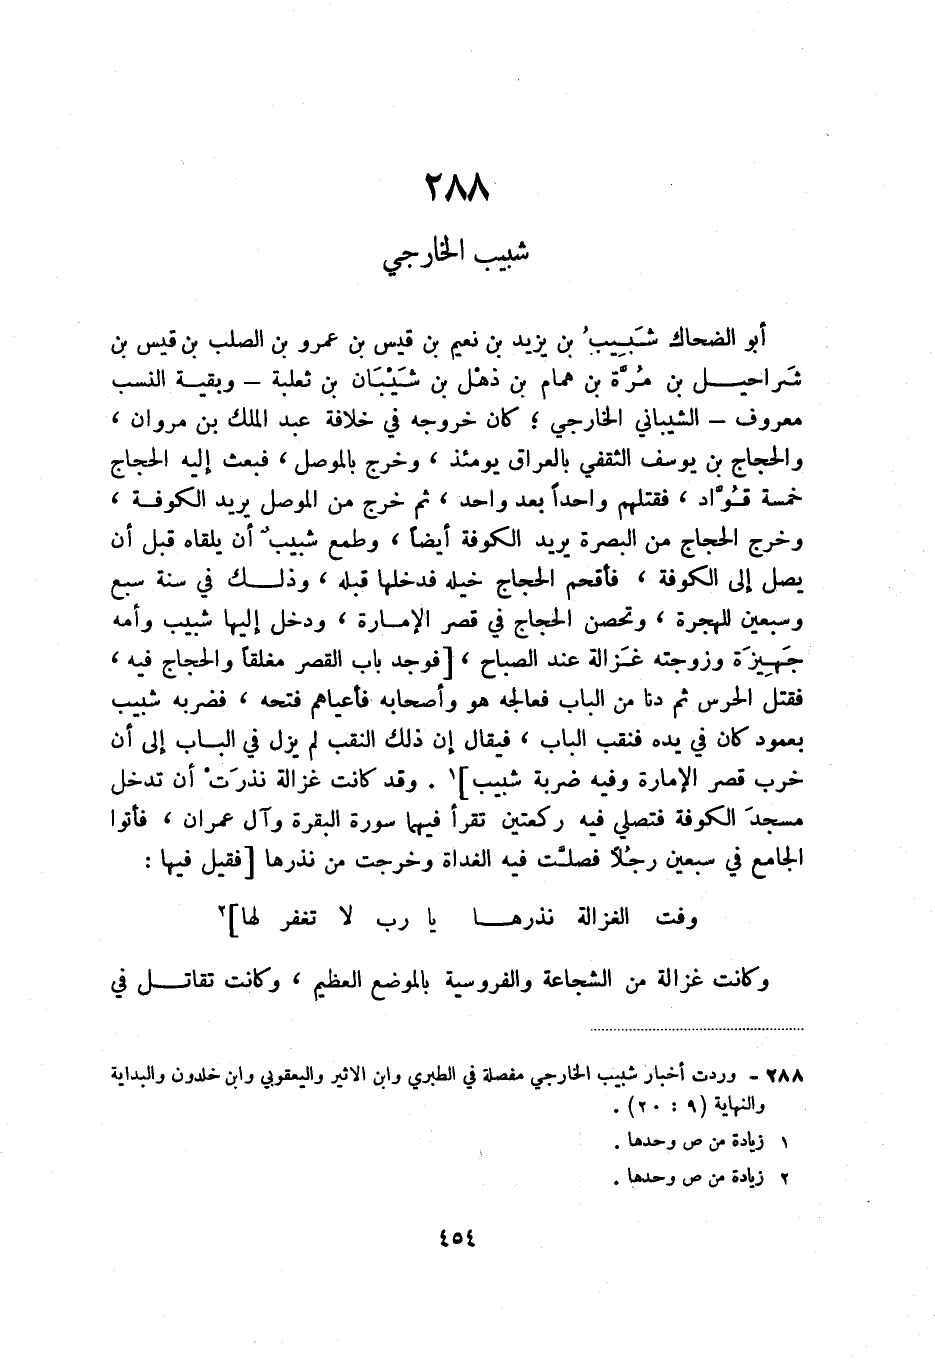 ٢٨٨
شبيب الخارجي
أبو الضحاك شَبِيبُ بن يزيد بن نعيم بن قيس بن عمرو بن الصلب بن قيس بن
شَراحيـل بن مُرَّة بن همام بن ذهْل بن شَيْبَان بن ثعلبة – وبقيـة النسب
معروف – الشيباني الخارجي ؛ كان خروجه في خلافة عبد الملك بن مروان ،
والحجاج بن يوسف الثقفي بالعراق يومئذ ، وخرج بالموصل ، فبعث إليه الحجاج
خمسة قُوَّاد ، فقتلهم واحداً بعد واحد ، ثم خرج من الموصل يريد الكوفـة ،
وخرج الحجاج من البصرة يريد الكوفة أيضاً ، وطمع شبيبٌ أن يلقاه قبل أن
يصل إلى الكوفة ، فأقحم الحجاج خيله فدخلها قبله ، وذلـك في سنة سبع
وسبعين للهجرة ، وتحصن الحجاج في قصر الإمـارة ، ودخل إليها شبيب وأمه
جَهِيزَة وزوجته غَزالة عند الصباح ، [فوجد باب القصر مغلقاً والحجاج فيه ،
فقتل الحرس ثم دنا من الباب فعالجه هو وأصحابه فأعياهم فتحه ، فضربه شبيب
بعمود كان في يده فنقب الباب ، فيقال إن ذلك النقب لم يزل في البـاب إلى أن
خرب قصر الإمارة وفيه ضربة شبيب]١ . وقد كانت غزالة نذرَتْ أن تدخل
مسجدَ الكوفة فتصلي فيه ركعتين تقرأ فيها سورة البقرة وآل عمران ، فأتوا
الجامع في سبعين رجُلاً فصلَّت فيه الغداة وخرجت من نذرها [فقيل فيها :
وفت الغزالة نذرهـا يا رب لا تغفر لها]٢
وكانت غزالة من الشجاعة والفروسية بالموضع العظيم ، وكانت تقاتـل في
٢٨٨ – وردت أخبار شبيب الخارجي مفصلة في الطبري وابن الاثير واليعقوبي وابن خلدون والبداية
والنهاية (٩ : ٢٠) .
١ زيادة من ص وحدها .
٢ زيادة من ص وحدها .
٤٥٤